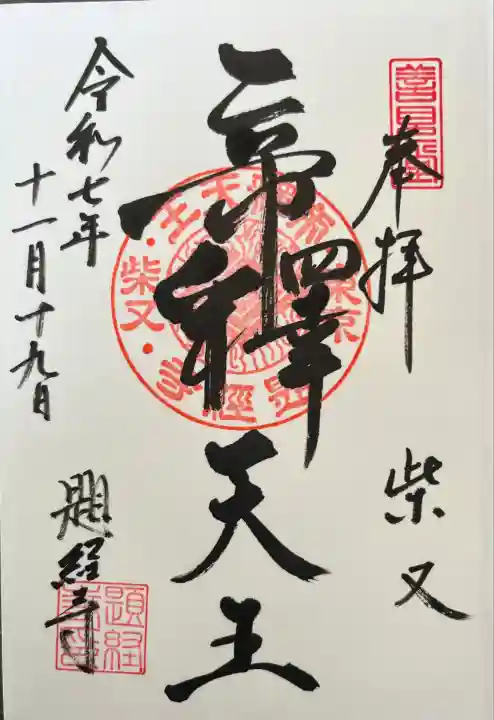 奉拝
柴又
帝釋天王
令和七年
十一月十九日
題経寺
東京
柴又
題経寺